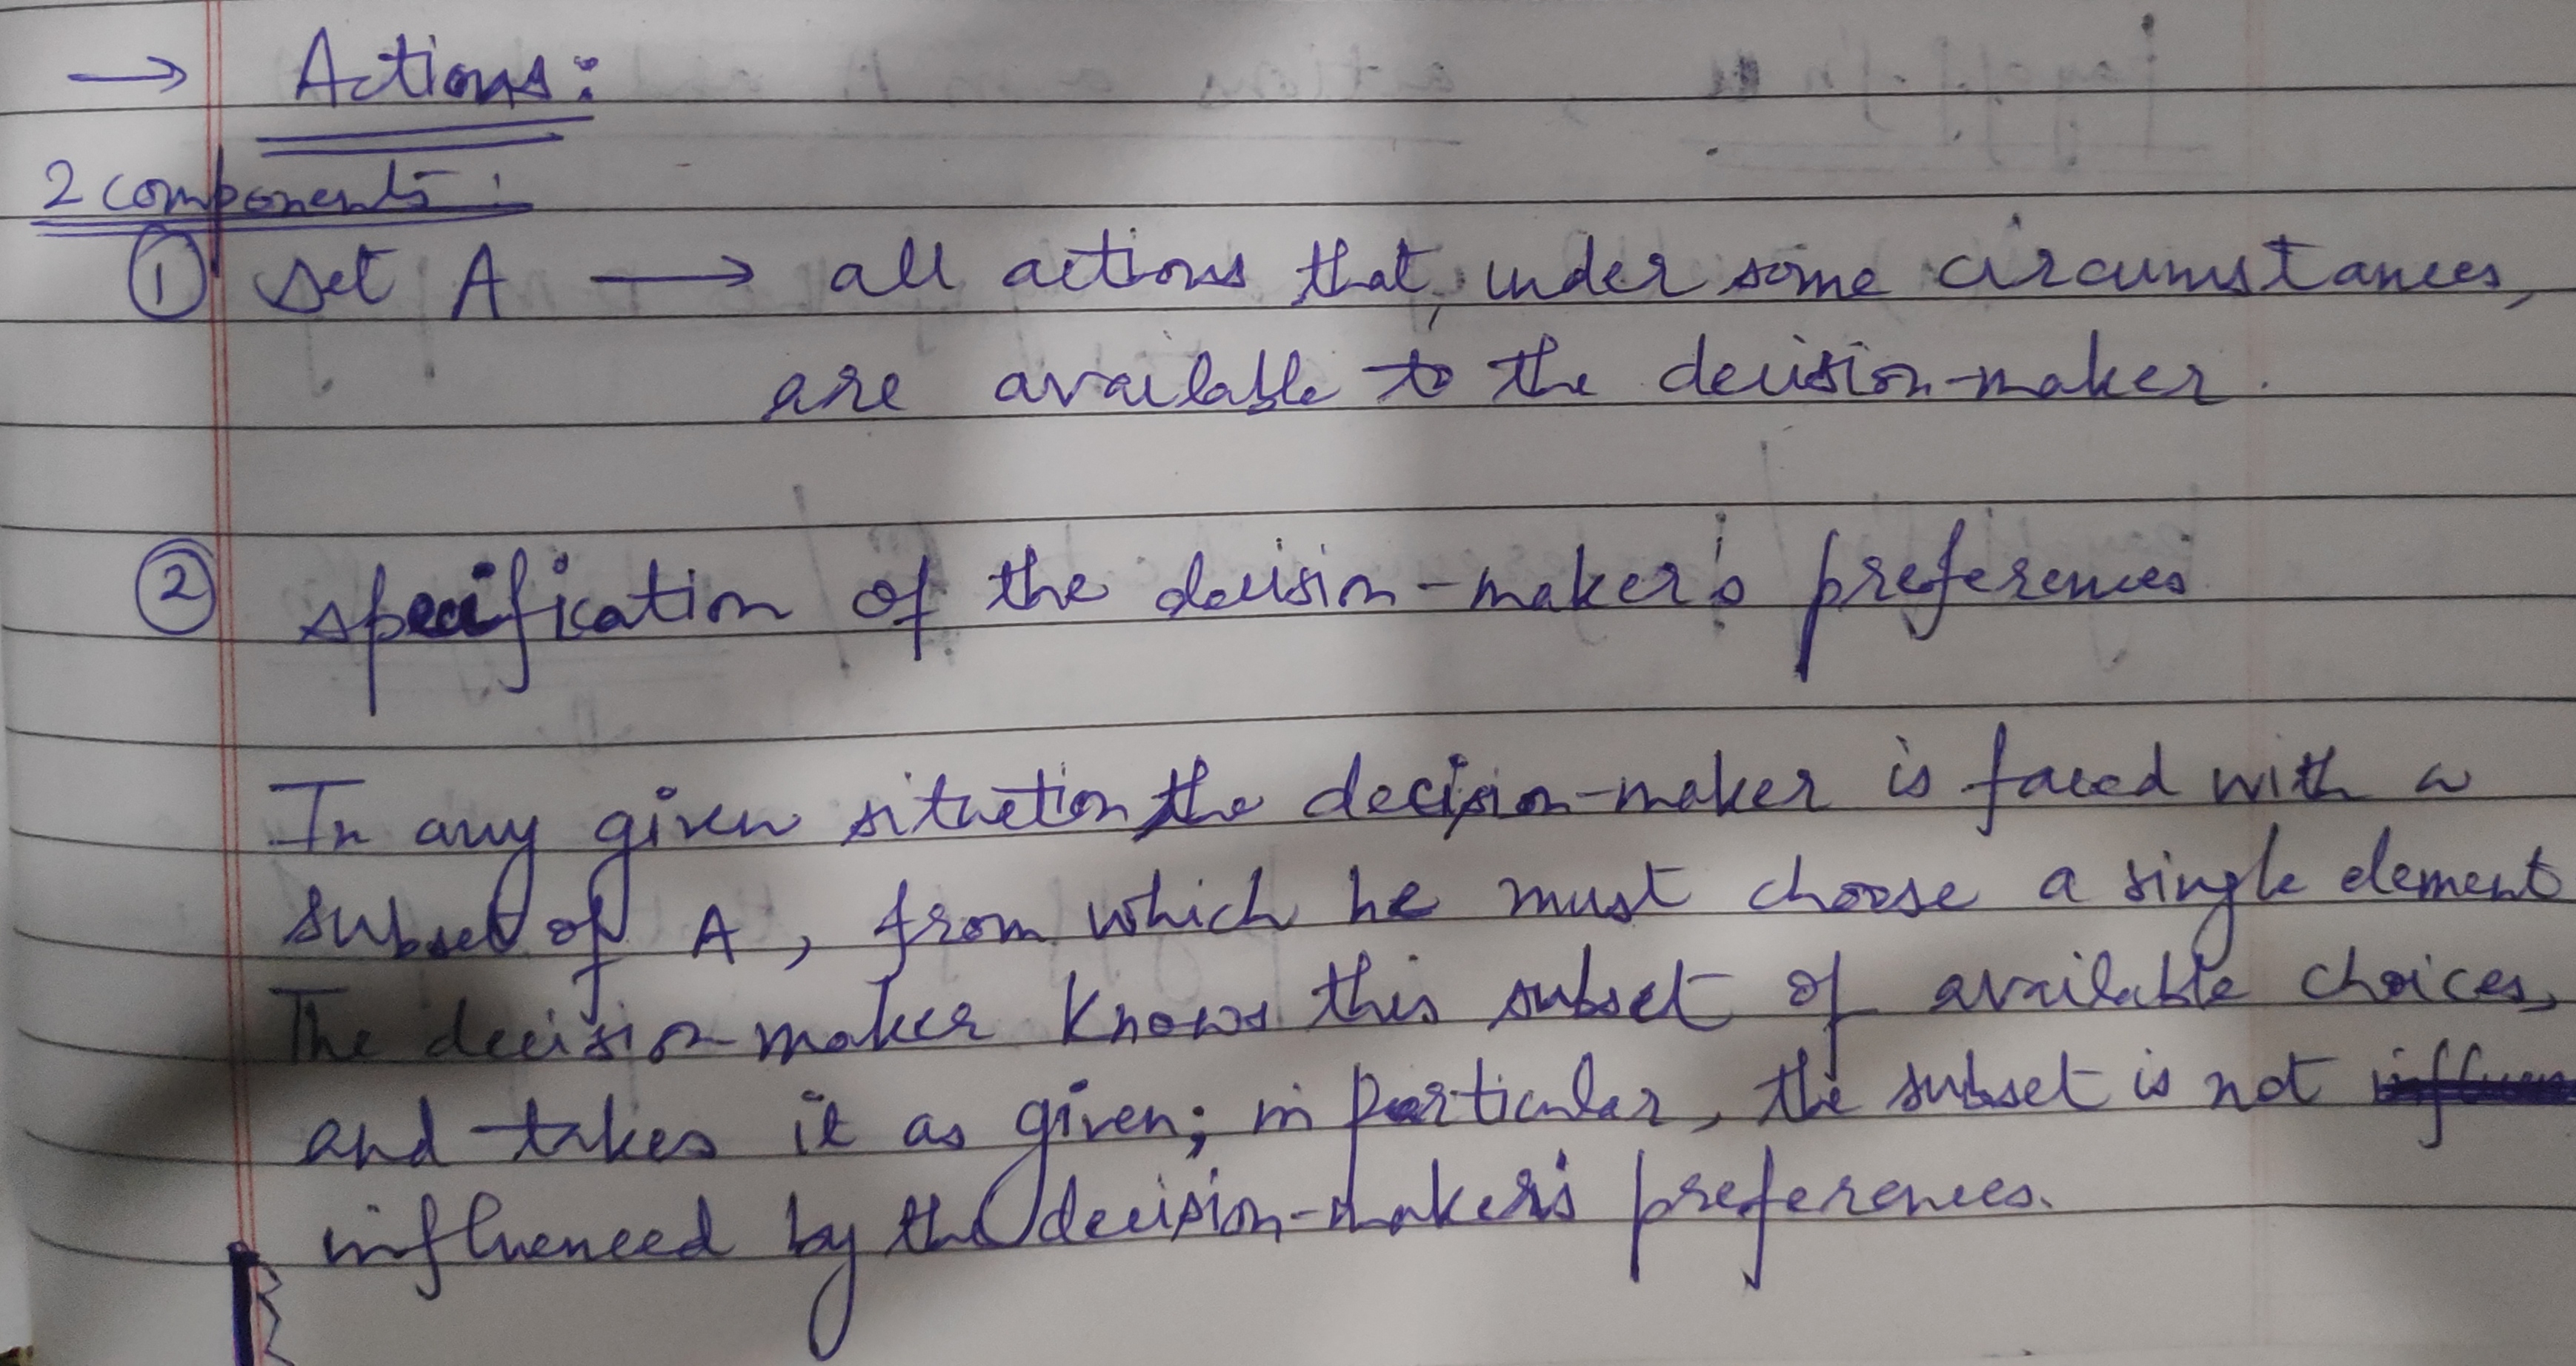 → Actions:
2 components:
① Set A → all actions that, under some circumstances,
are available to the decision-maker.
② specification of the decision-maker's preferences
In any given situation the decision-maker is faced with a
subset of A, from which he must choose a single element
The decision-maker knows this subset of available choices,
and takes it as given; in particular, the subset is not
influenced by the decision-maker's preferences.